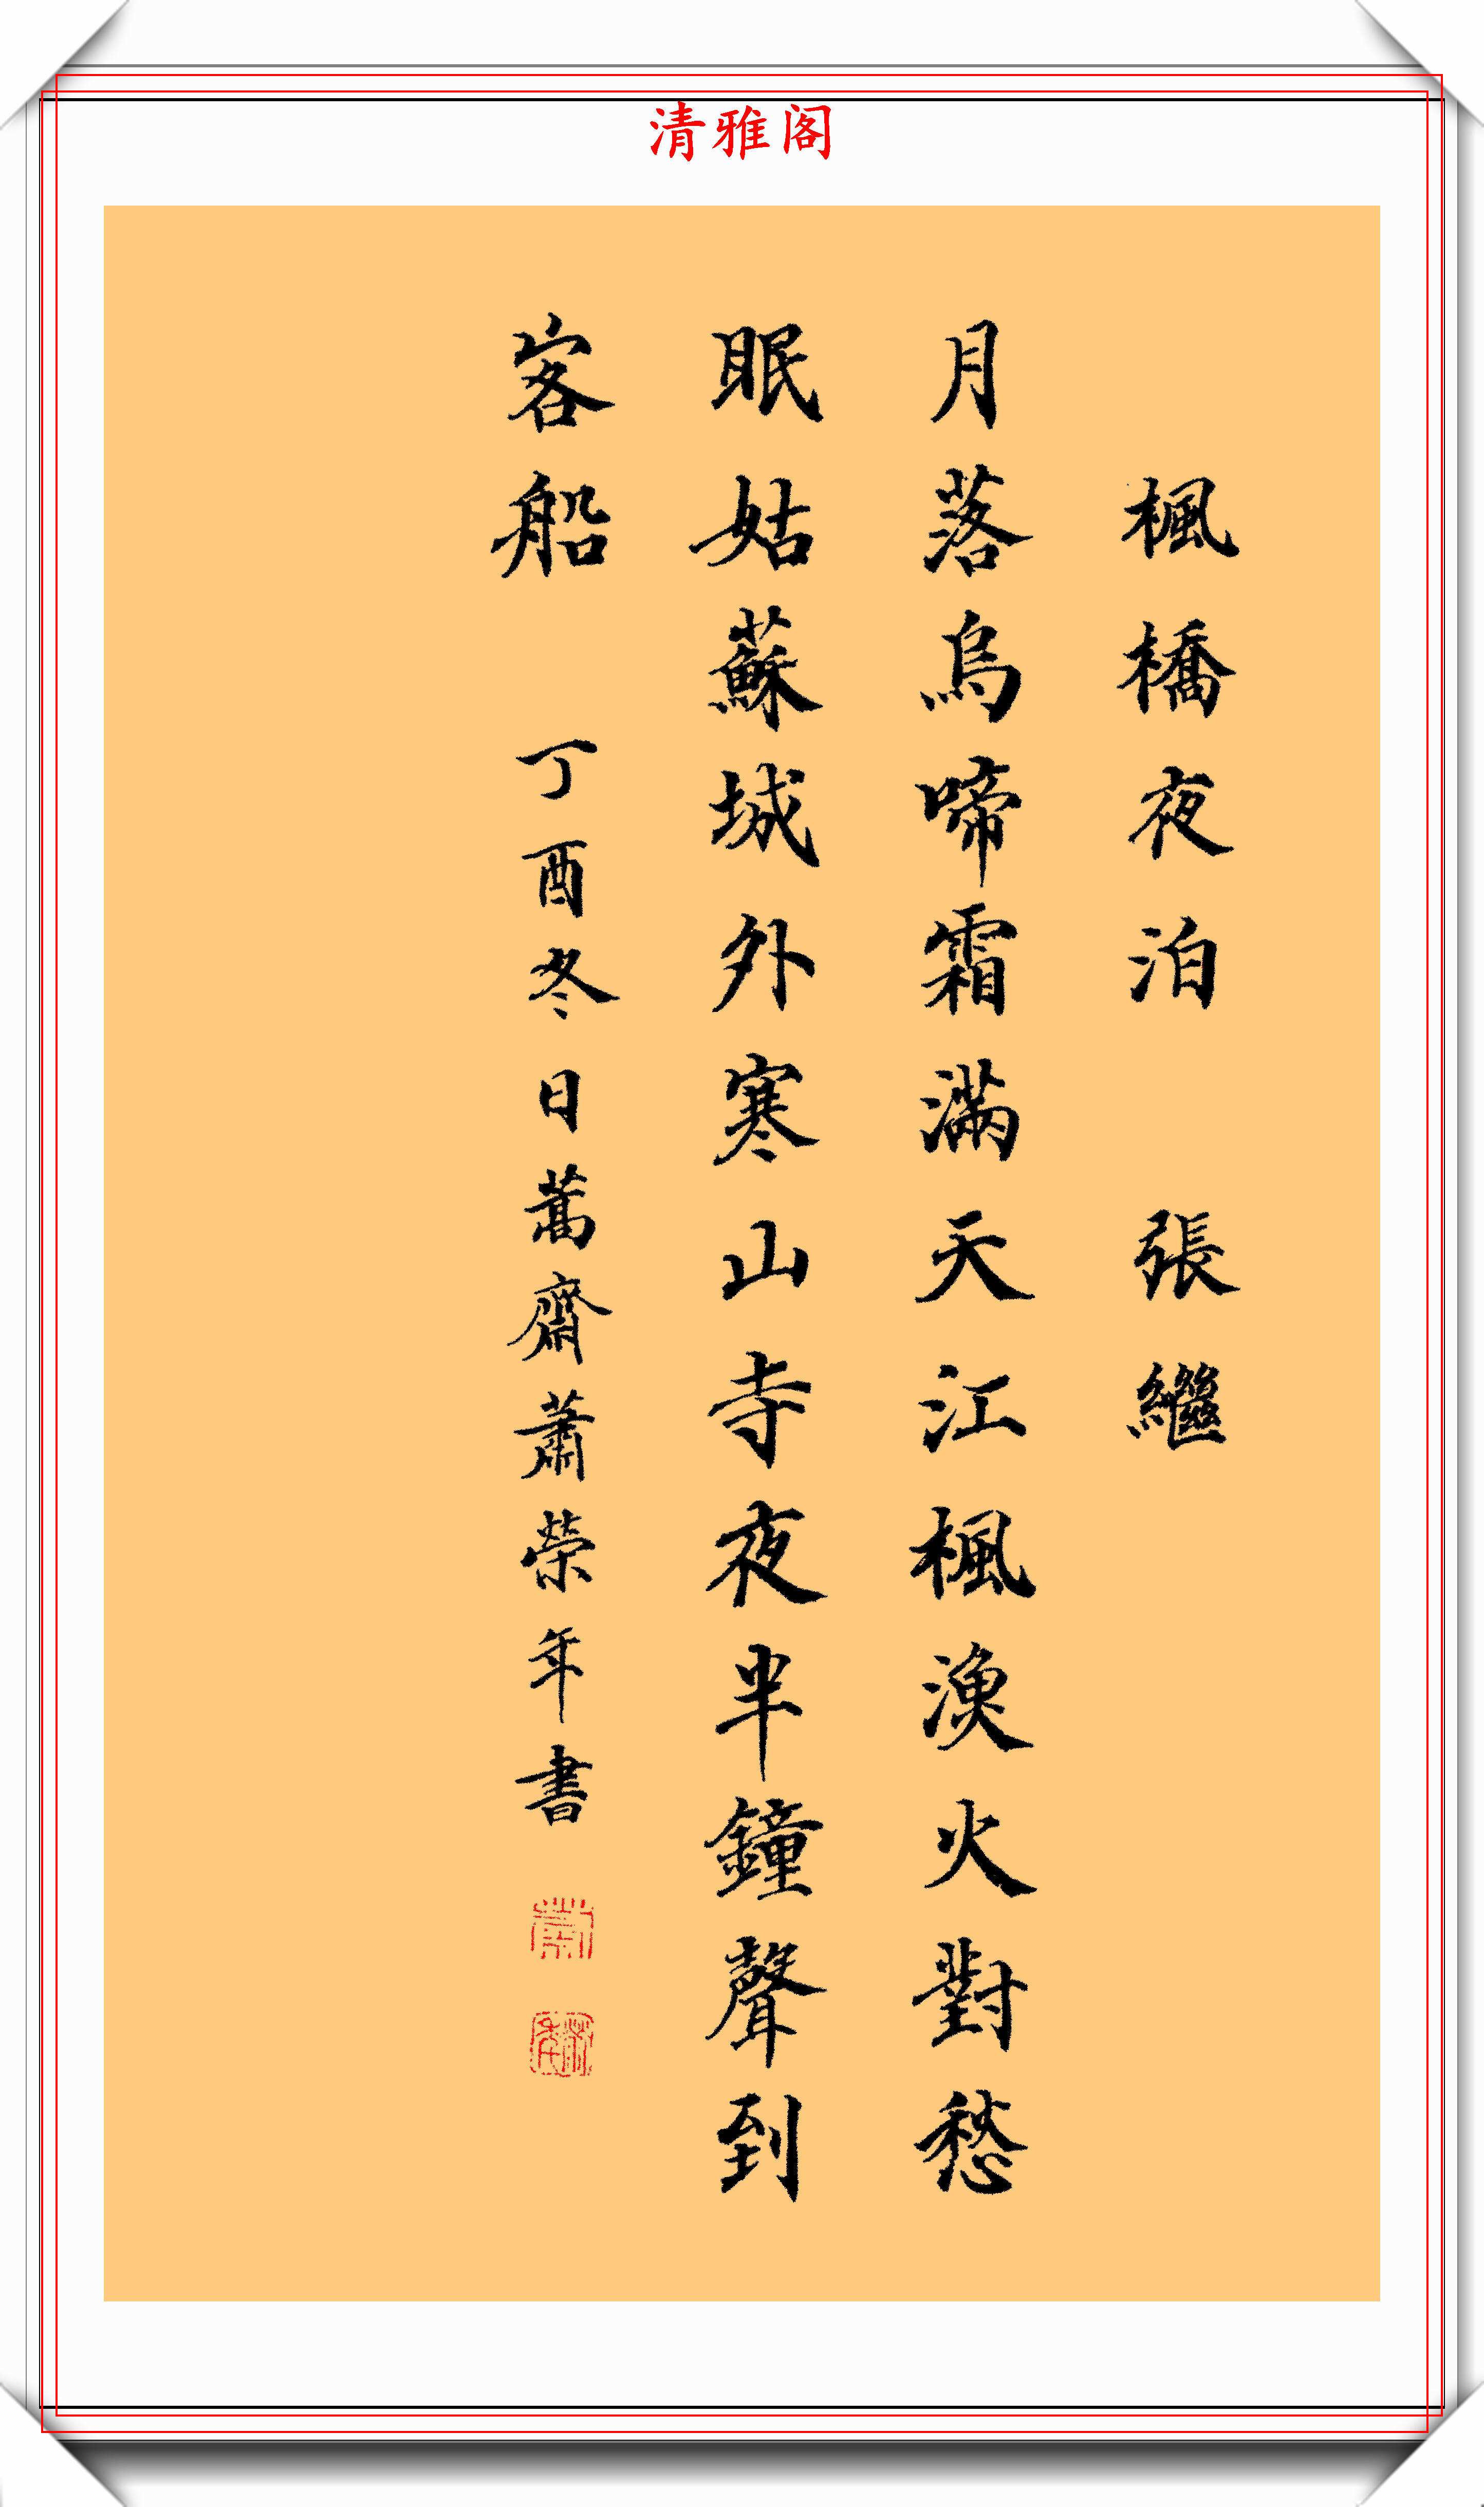 清雅阁
楓橋夜泊 張繼
月落烏啼霜滿天江楓漁火對愁
眠姑蘇城外寒山寺夜半鐘聲到
客船 丁酉冬日蒿齋蕭榮年書